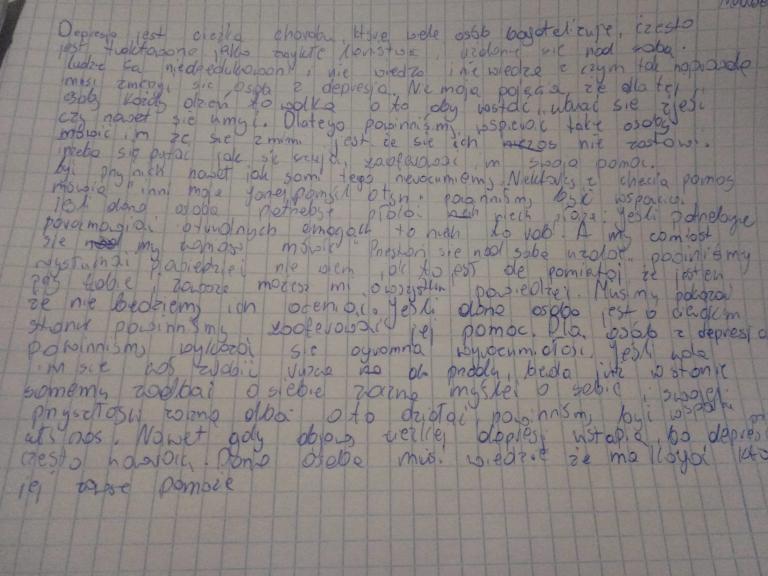 Depresja jest ciężką chorobą, które wele osób bagatelizuje, często
jest traktowana jako zwykłe użalanie się nad sobą.
Ludzie są niedoedukowani i nie wiedzą, nie wiedzą z czym tak naprawdę
musi zmagać się osoba z depresją. Nie mają pojęcia, że dla tej
osoby każdy dzień to walka o to aby wstać, ubrać się zjeść
czy nawet się umyć. Dlatego powinniśmy wspierać takie osoby
mówić im że się z nimi jest że się ich nie zostawi.
trzeba się pytać jak się czują, zaoferować im swoją pomoc.
być przy nich nawet jak sami tego nie rozumiemy. Niektórzy z chęcią pomogą
mówią "inni mają gorzej" powinniśmy być wsparciem.
Jeśli dana osoba potrzebuje niech płacze. Jeśli potrzebuje
porozmagiać o trudnych emocjach to niech to robi. A my zamiast
się mówić "Przestań się nad sobą użalać" powinniśmy
wysłuchać powiedzieć nie wiem jak to jest ale pamiętaj że jestem
przy tobie i zawsze możesz mi o wszystkim powiedzieć. Musimy pokazać
że nie będziemy ich oceniać. Jeśli dana osoba jest w ciężkim
stanie powinniśmy zaoferować jej pomoc. Dla osób z depresją
powinniśmy wykazać się ogromną wyrozumiałością. Jeśli uda
im się coś zrobić będą już w stanie
samemu zadbać o siebie zaczną myśleć o sobie i swojej
przyszłości zaczną dbać o to dalej powinniśmy być wsparciem
Nawet gdy objawy depresji ustąpią, bo depresja
często nawraca. Dana osoba musi wiedzieć że ma kogoś kto
jej zawsze pomoże